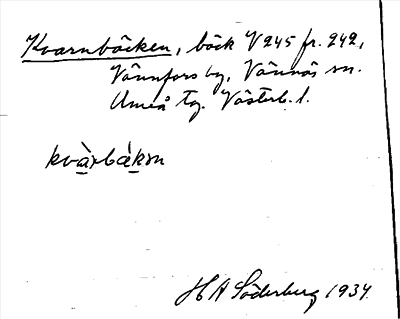 Kvarnbäcken, bäck V 245 fr. 242,
Vännfors by, Vännäs sn.
Umeå tg. Västerb. l.
kvàrbáksn
H A Söderberg 1934